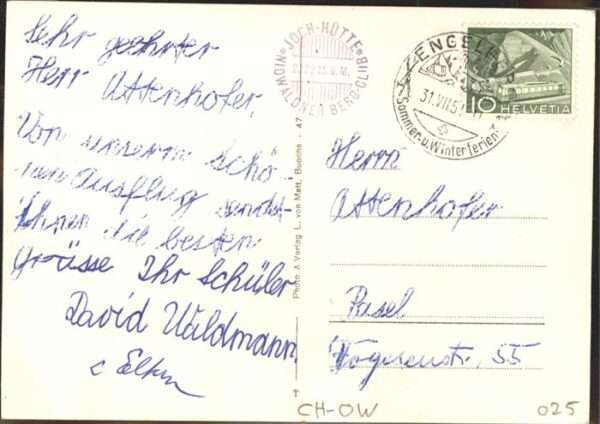 Sehr geehrter
Herr Attenhofer
Von unserm Schö-
nen Ausflug sendet
Ihnen die besten
Grüsse Ihr Schüler
David Waldmann
JOCH-HÜTTE
NIDWALDNER BERG-CLUB
Photo & Verlag L. von Matt, Buochs 47
ENGELBERG
31.VII.5
Sommer-u.Winterferien
10 HELVETIA
Herrn
Attenhofer
Basel
Vogesenstr. 55
CH-OW
025